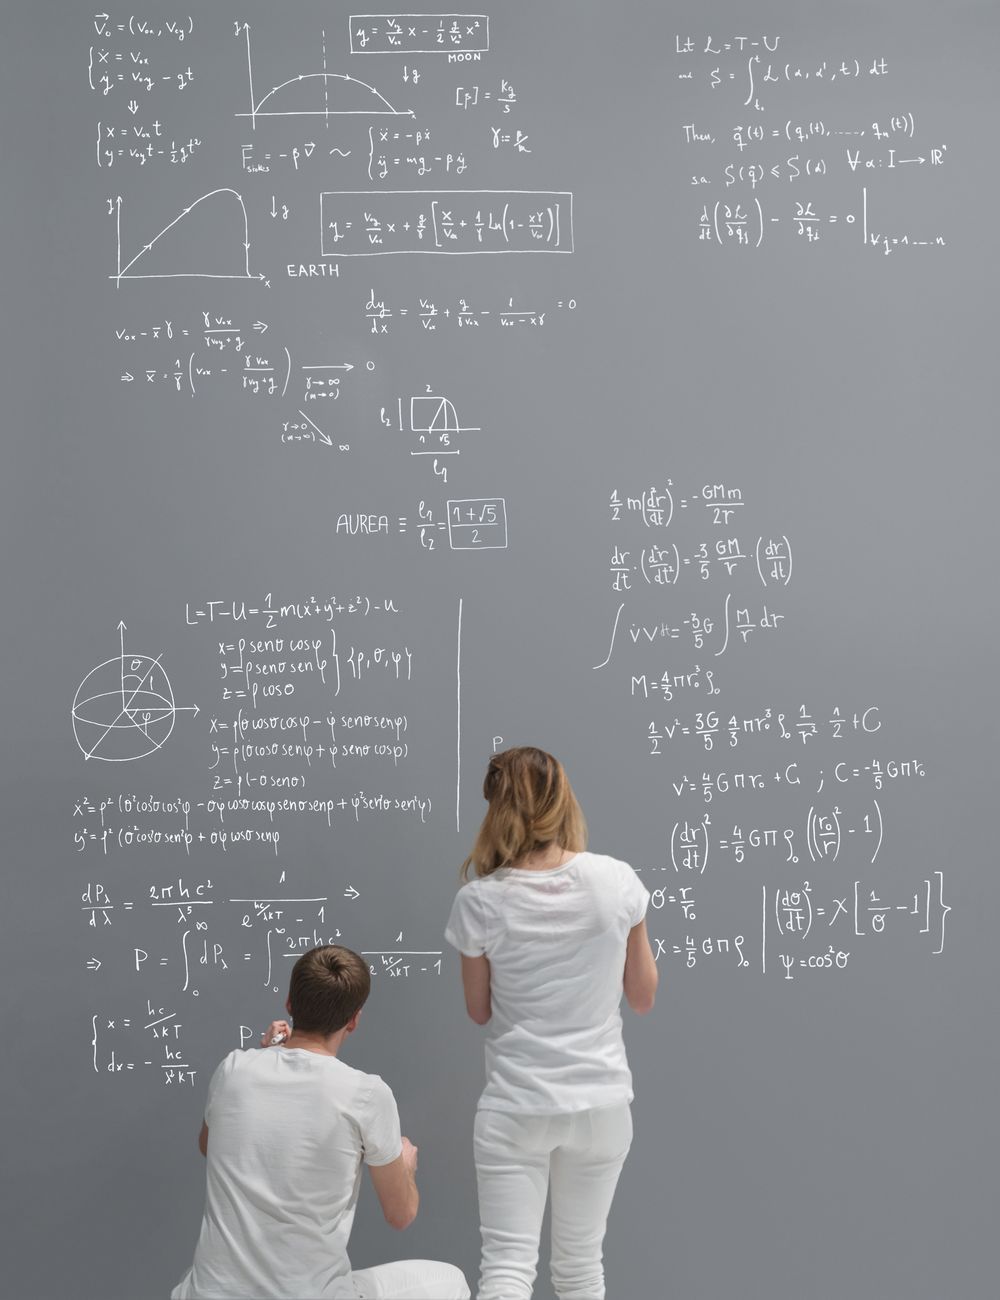 V⃗₀ = (V₀ₓ, V₀y)
ẋ = V₀ₓ
ẏ = V₀y - gt
⇓
x = V₀ₓ t
y = V₀y t - 1/2 g t²
y
x
y = V₀y/V₀ₓ x - 1/2 g/V₀ₓ² x²
MOON
↓g
[β] = kg/s
F⃗stokes = -β V⃗ ~
ẍ = -βẋ
ÿ = mg - βẏ
γ := β/m
y
x
↓g
EARTH
y = V₀y/V₀ₓ x + g/γ [x/V₀ₓ + 1/γ Ln(1 - xγ/V₀ₓ)]
dy/dx = V₀y/V₀ₓ + g/γV₀ₓ - 1/(V₀ₓ - xγ) = 0
V₀ₓ - x̄γ = γV₀ₓ/(γV₀y + g) ⇒
⇒ x̄ = 1/γ (V₀ₓ - γV₀ₓ/(γV₀y + g)) → 0
γ→∞
(m→0)
γ→0
(m→∞)
∞
2
ℓ₂
1 √5
ℓ₁
AUREA ≡ ℓ₁/ℓ₂ = (1+√5)/2
Let ℒ = T - U
and S = ∫ₜ₀ᵗ ℒ(α, α', t) dt
Then, q⃗(t) = (q₁(t), ....., qₙ(t))
s.a. S(q⃗) ≤ S(α) ∀ α : I → ℝⁿ
d/dt (∂ℒ/∂q̇j) - ∂ℒ/∂qj = 0 | ∀ j = 1 ..... n
1/2 m(d²r/dt)² = -GMm/2r
dr/dt · (d²r/dt²) = -3/5 GM/r · (dr/dt)
∫ v̇v dt = -3/5 G ∫ M/r dr
M = 4/3 πr₀³ρ₀
1/2 v² = 3G/5 · 4/3 πr₀³ ρ₀ 1/r² · 1/2 + C
v² = 4/5 Gπr₀ + C ; C = -4/5 Gπr₀
(dr/dt)² = 4/5 Gπ ρ₀ ((r₀/r) - 1)
σ = r/r₀
χ = 4/5 Gπρ₀
(dσ/dt)² = χ [1/σ - 1]
ψ = cos²σ
L = T - U = 1/2 m(ẋ² + ẏ² + ż²) - U
x = ρ senσ cosφ
y = ρ senσ senφ
z = ρ cosσ
{ρ, σ, φ}
σ
1
φ
ẋ = ρ(σ̇ cosσ cosφ - φ̇ senσ senφ)
ẏ = ρ(σ̇ cosσ senφ + φ̇ senσ cosφ)
ż = ρ(-σ̇ senσ)
ẋ² = ρ² (σ̇² cos²σ cos²φ - σ̇φ̇ cosσ cosφ senσ senφ + φ̇² sen²σ sen²φ)
ẏ² = ρ² (σ̇² cos²σ sen²φ + σ̇φ̇ cosσ senφ
P
dPλ/dλ = 2πhc²/λ⁵ · 1/(e^(hc/λKT) - 1) ⇒
⇒ P = ∫₀^∞ dPλ = ∫₀^∞ 2πhc² 1/(e^(hc/λKT) - 1)
x = hc/λKT
dx = - hc/λ²KT
P =